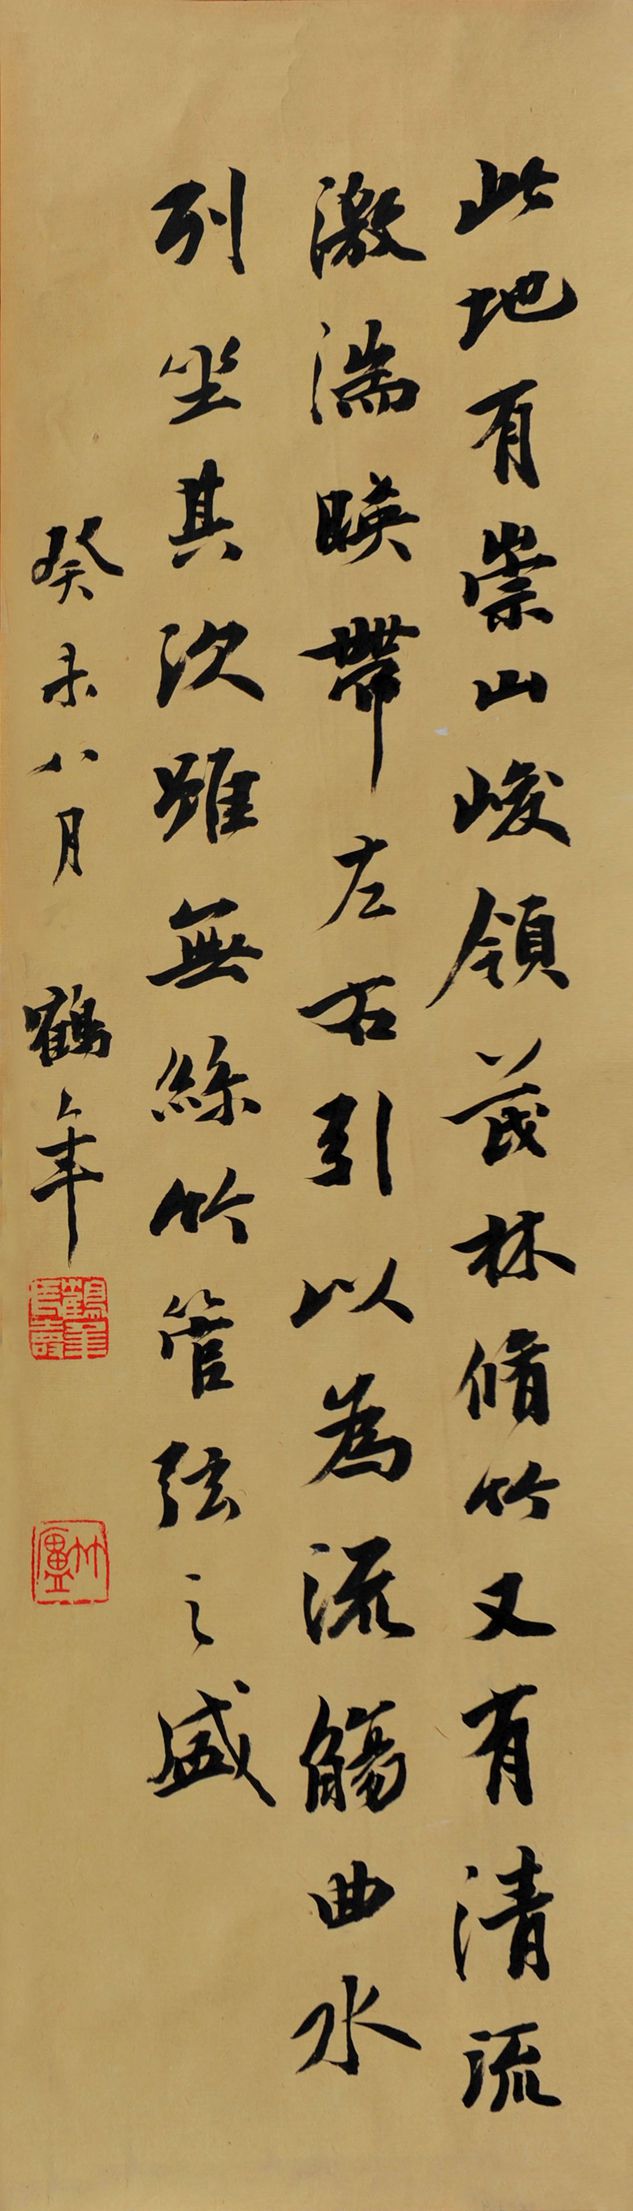 此地有崇山峻領茂林脩竹又有清流
激湍暎帶左右引以為流觴曲水
列坐其次雖無絲竹管弦之盛
癸未八月 鶴年
竹廬